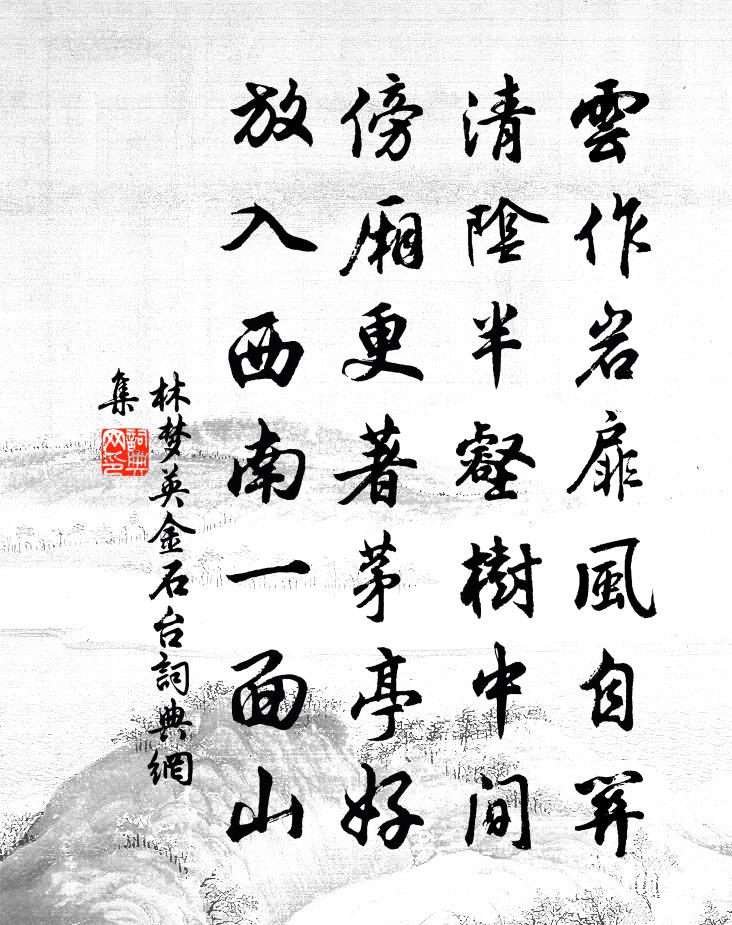 雲作岩扉風自關
清陰半壑樹中間
傍廂更著茅亭好
放入西南一面山
林梦英金石台詞典網
集
詞典
网印